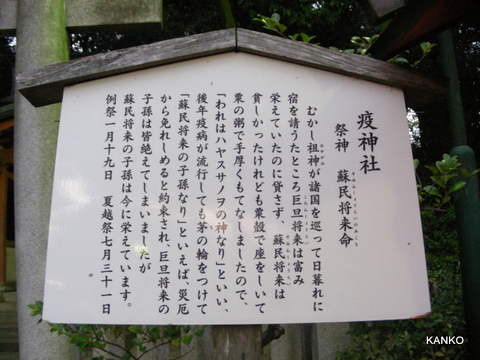 疫神社
祭神 蘇民将来命
むかし祖神が諸国を巡って日暮れに
宿を請うたところ巨旦将来は富み
栄えていたのに貸さず、蘇民将来は
貧しかったけれども粟殻で座をしいて
粟の粥で手厚くもてなしましたので、
「われはハヤスサノヲの神なり」といい、
後年疫病が流行しても茅の輪をつけて
「蘇民将来の子孫なり」といえば、災厄
から免れしめると約束され、巨旦将来の
子孫は皆絶えてしまいましたが
蘇民将来の子孫は今に栄えています。
例祭一月十九日 夏越祭七月三十一日
KANKO